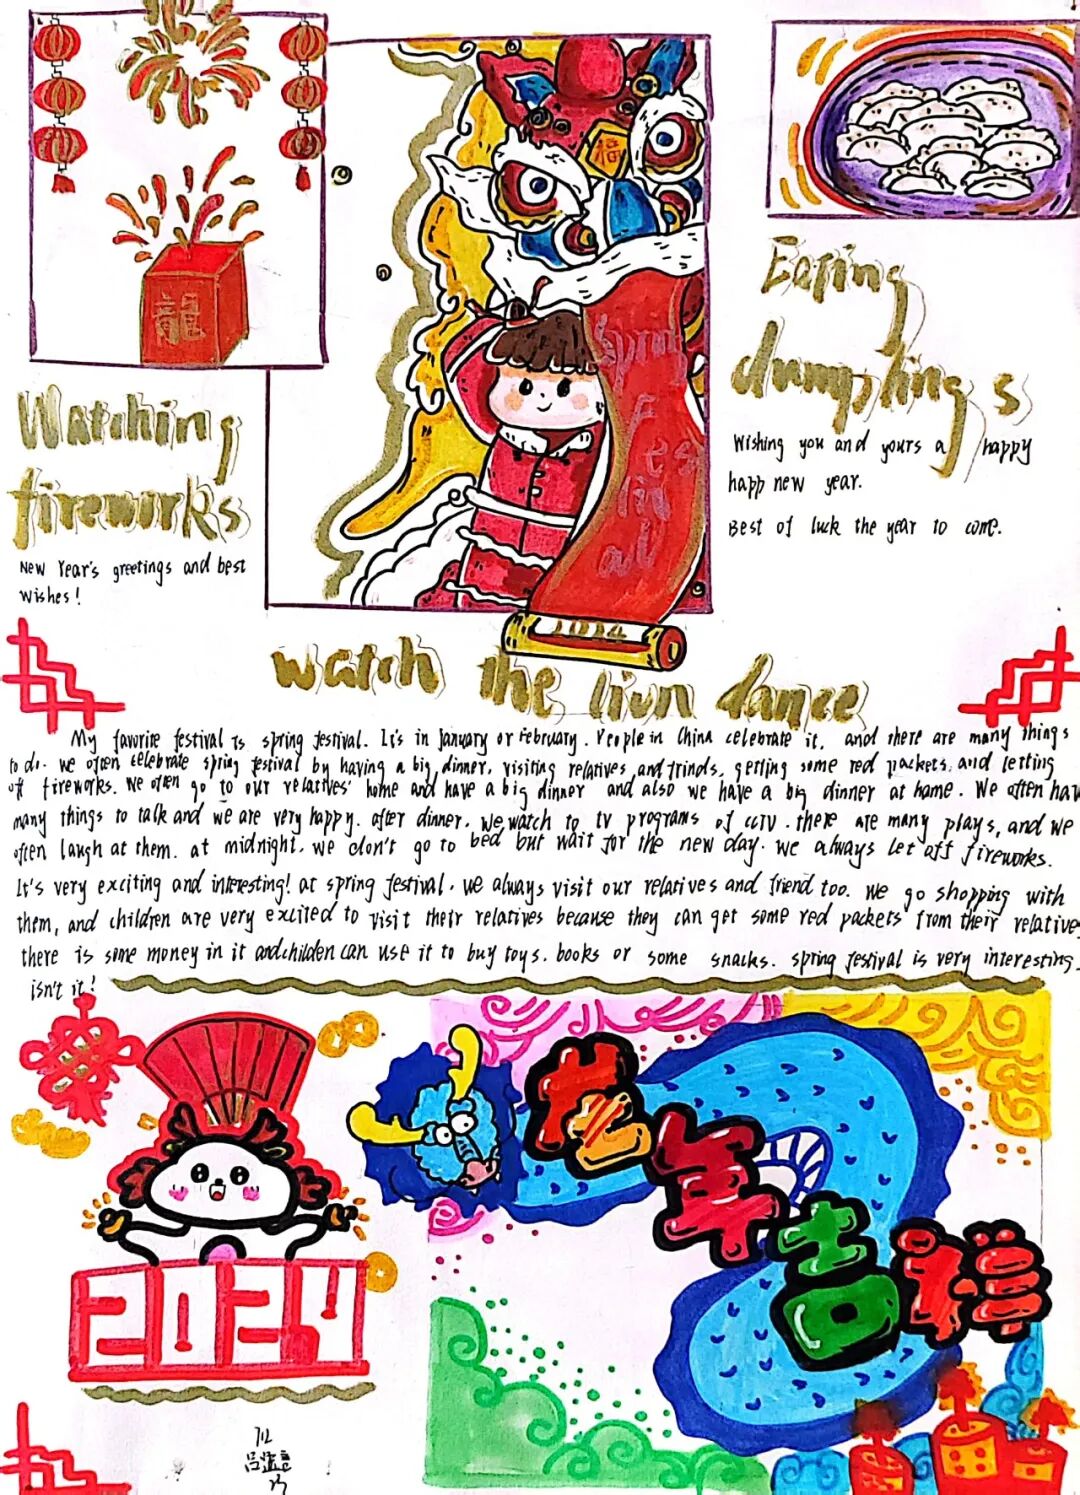 龍
福
Spring
Festival
Eating
dumplings
Wishing you and yours a happy
happ new year.
Best of luck the year to come.
Watching
fireworks
New Year's greetings and best
wishes!
watch the lion dance
My favorite festival is spring festival. It's in January or February. People in China celebrate it, and there are many things
to do. we often celebrate spring festival by having a big dinner, visiting relatives and frinds, getting some red packets, and letting
off fireworks. We often go to our relatives' home and have a big dinner and also we have a big dinner at home. We often hav
many things to talk and we are very happy. after dinner. we watch to tv programs of cctv. there are many plays, and we
often laugh at them. at midnight, we don't go to bed but wait for the new day. we always let off fireworks.
It's very exciting and interesting! at spring festival, we always visit our relatives and friend too. we go shopping with
them, and children are very excited to visit their relatives because they can get some red packets from their relative
there is some money in it and childen can use it to buy toys. books or some snacks. spring festival is very interesting.
isn't it!
龙年吉祥
2024